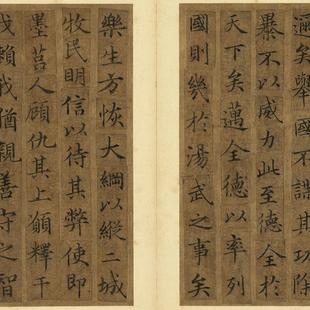 邇矣舉國不謀其功除
暴不以威力此至德全於
天下矣邁全德以率列
國則幾於湯武之事矣
樂生方恢大綱以縱二城
牧民明信以待其弊使即
墨莒人顧仇其上願釋干
戈賴我猶親善守之智